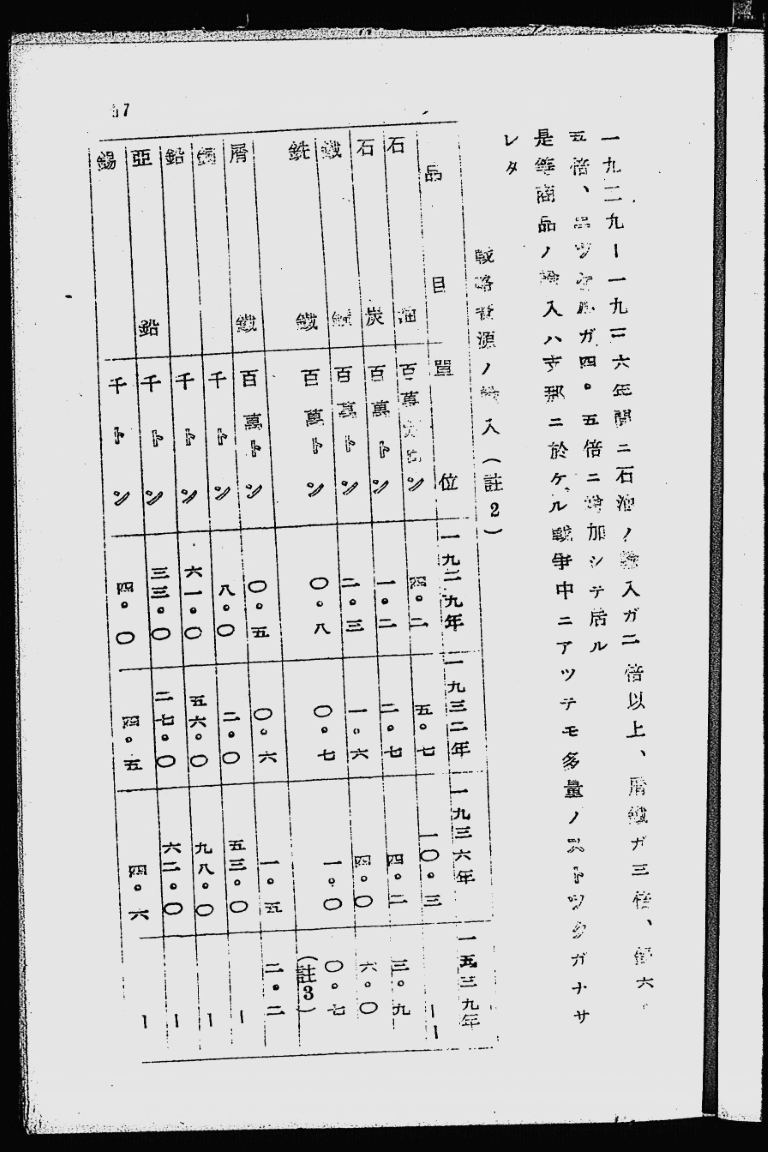 57
一九二九ー一九三六年間ニ石油ノ輸入ガ二倍以上、屑鐵ガ三倍、銅六。
五倍、ニツケルガ四。五倍ニ増加シテ居ル
是等商品ノ輸入ハ支那ニ於ケル戰爭中ニアツテモ多量ノストツクガナサ
レタ
戰略資源ノ輸入(註2)
品目 單位 一九二九年 一九三二年 一九三六年 一五三九年
石油 百萬 ン 四。二 五。七 一〇。三 ーー
石炭 百萬トン 一。二 二。七 四。二 三。九
鐵鑛 百萬トン 二。三 一。六 四。〇 六。〇
銑鐵 百萬トン 〇。八 〇。七 一。〇 〇。七(註3)
屑鐵 百萬トン 〇。五 〇。六 一。五 二。二
銅 千トン 八。〇 二。〇 五三。〇 ー
鉛 千トン 六一。〇 五六。〇 九八。〇 ー
亞鉛 千トン 三三。〇 二七。〇 六二。〇 ー
錫 千トン 四。〇 四。五 四。六 ー